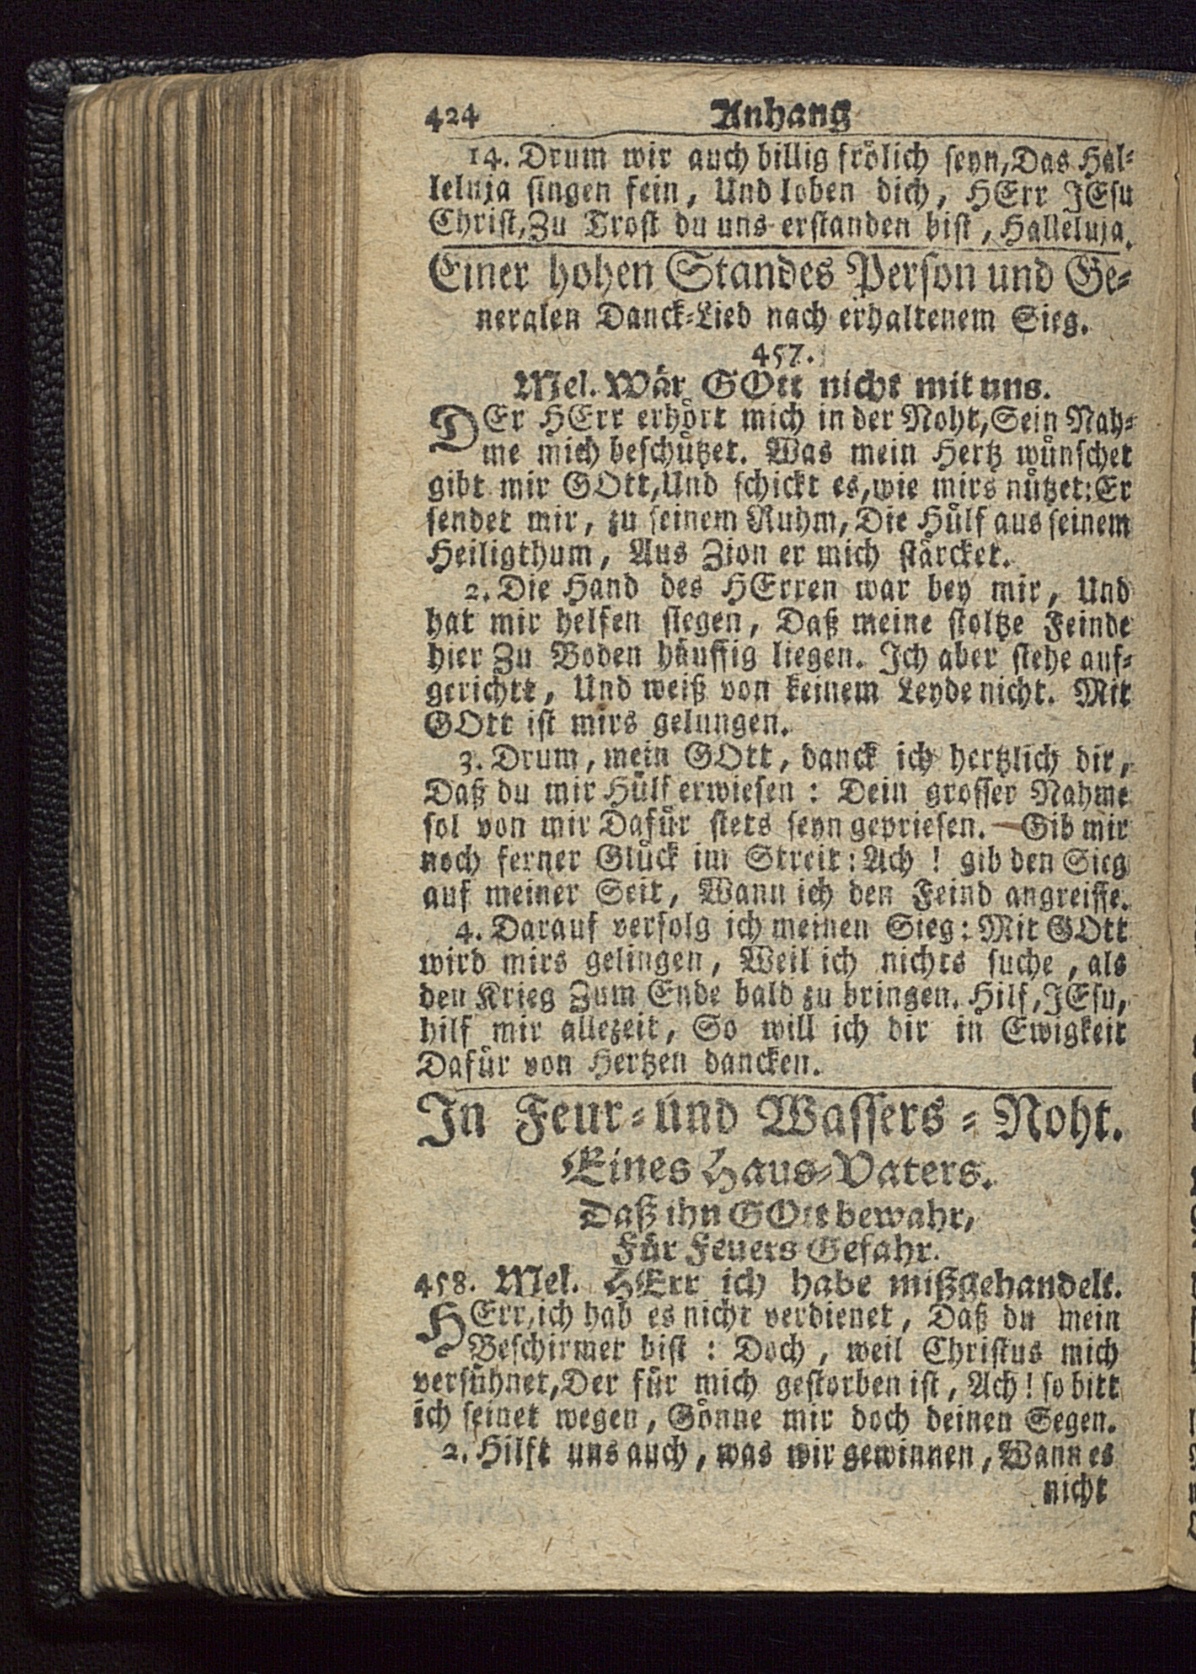 424 Anhang
14. Drum wir auch billig frölich seyn, Das Hal-
leluja singen fein, Und loben dich, HErr JEsu
Christ, Zu Trost du uns erstanden bist, Halleluja.
Einer hohen Standes Person und Ge-
neralen Danck-Lied nach erhaltenem Sieg.
457.
Mel. Wär GOtt nicht mit uns.
DEr HErr erhört mich in der Noht, Sein Nah-
me mich beschützet. Was mein Hertz wünschet
gibt mir GOtt, Und schickt es, wie mirs nützet: Er
sendet mir, zu seinem Ruhm, Die Hülf aus seinem
Heiligthum, Aus Zion er mich stärcket.
2. Die Hand des HErren war bey mir, Und
hat mir helfen siegen, Daß meine stoltze Feinde
hier Zu Boden häuffig liegen. Ich aber stehe auf-
gericht, Und weiß von keinem Leyde nicht. Mit
GOtt ist mirs gelungen.
3. Drum, mein GOtt, danck ich hertzlich dir,
Daß du mir Hülf erwiesen: Dein grosser Nahme
sol von mir Dafür stets seyn gepriesen. Gib mir
noch ferner Glück im Streit: Ach! gib den Sieg
auf meiner Seit, Wann ich den Feind angreiffe.
4. Darauf verfolg ich meinen Sieg: Mit GOtt
wird mirs gelingen, Weil ich nichts suche, als
den Krieg Zum Ende bald zu bringen. Hilf, JEsu,
hilf mir allezeit, So will ich dir in Ewigkeit
Dafür von Hertzen dancken.
In Feur- und Wassers-Noht.
Eines Haus-Vaters.
Daß ihn GOtt bewahr,
Für Feuers Gefahr.
458. Mel. HErr ich habe mißgehandelt.
HErr, ich hab es nicht verdienet, Daß du mein
Beschirmer bist: Doch, weil Christus mich
versühnet, Der für mich gestorben ist, Ach! so bitt
ich seinet wegen, Gönne mir doch deinen Segen.
2. Hilft uns auch, was wir gewinnen, Wann es
nicht